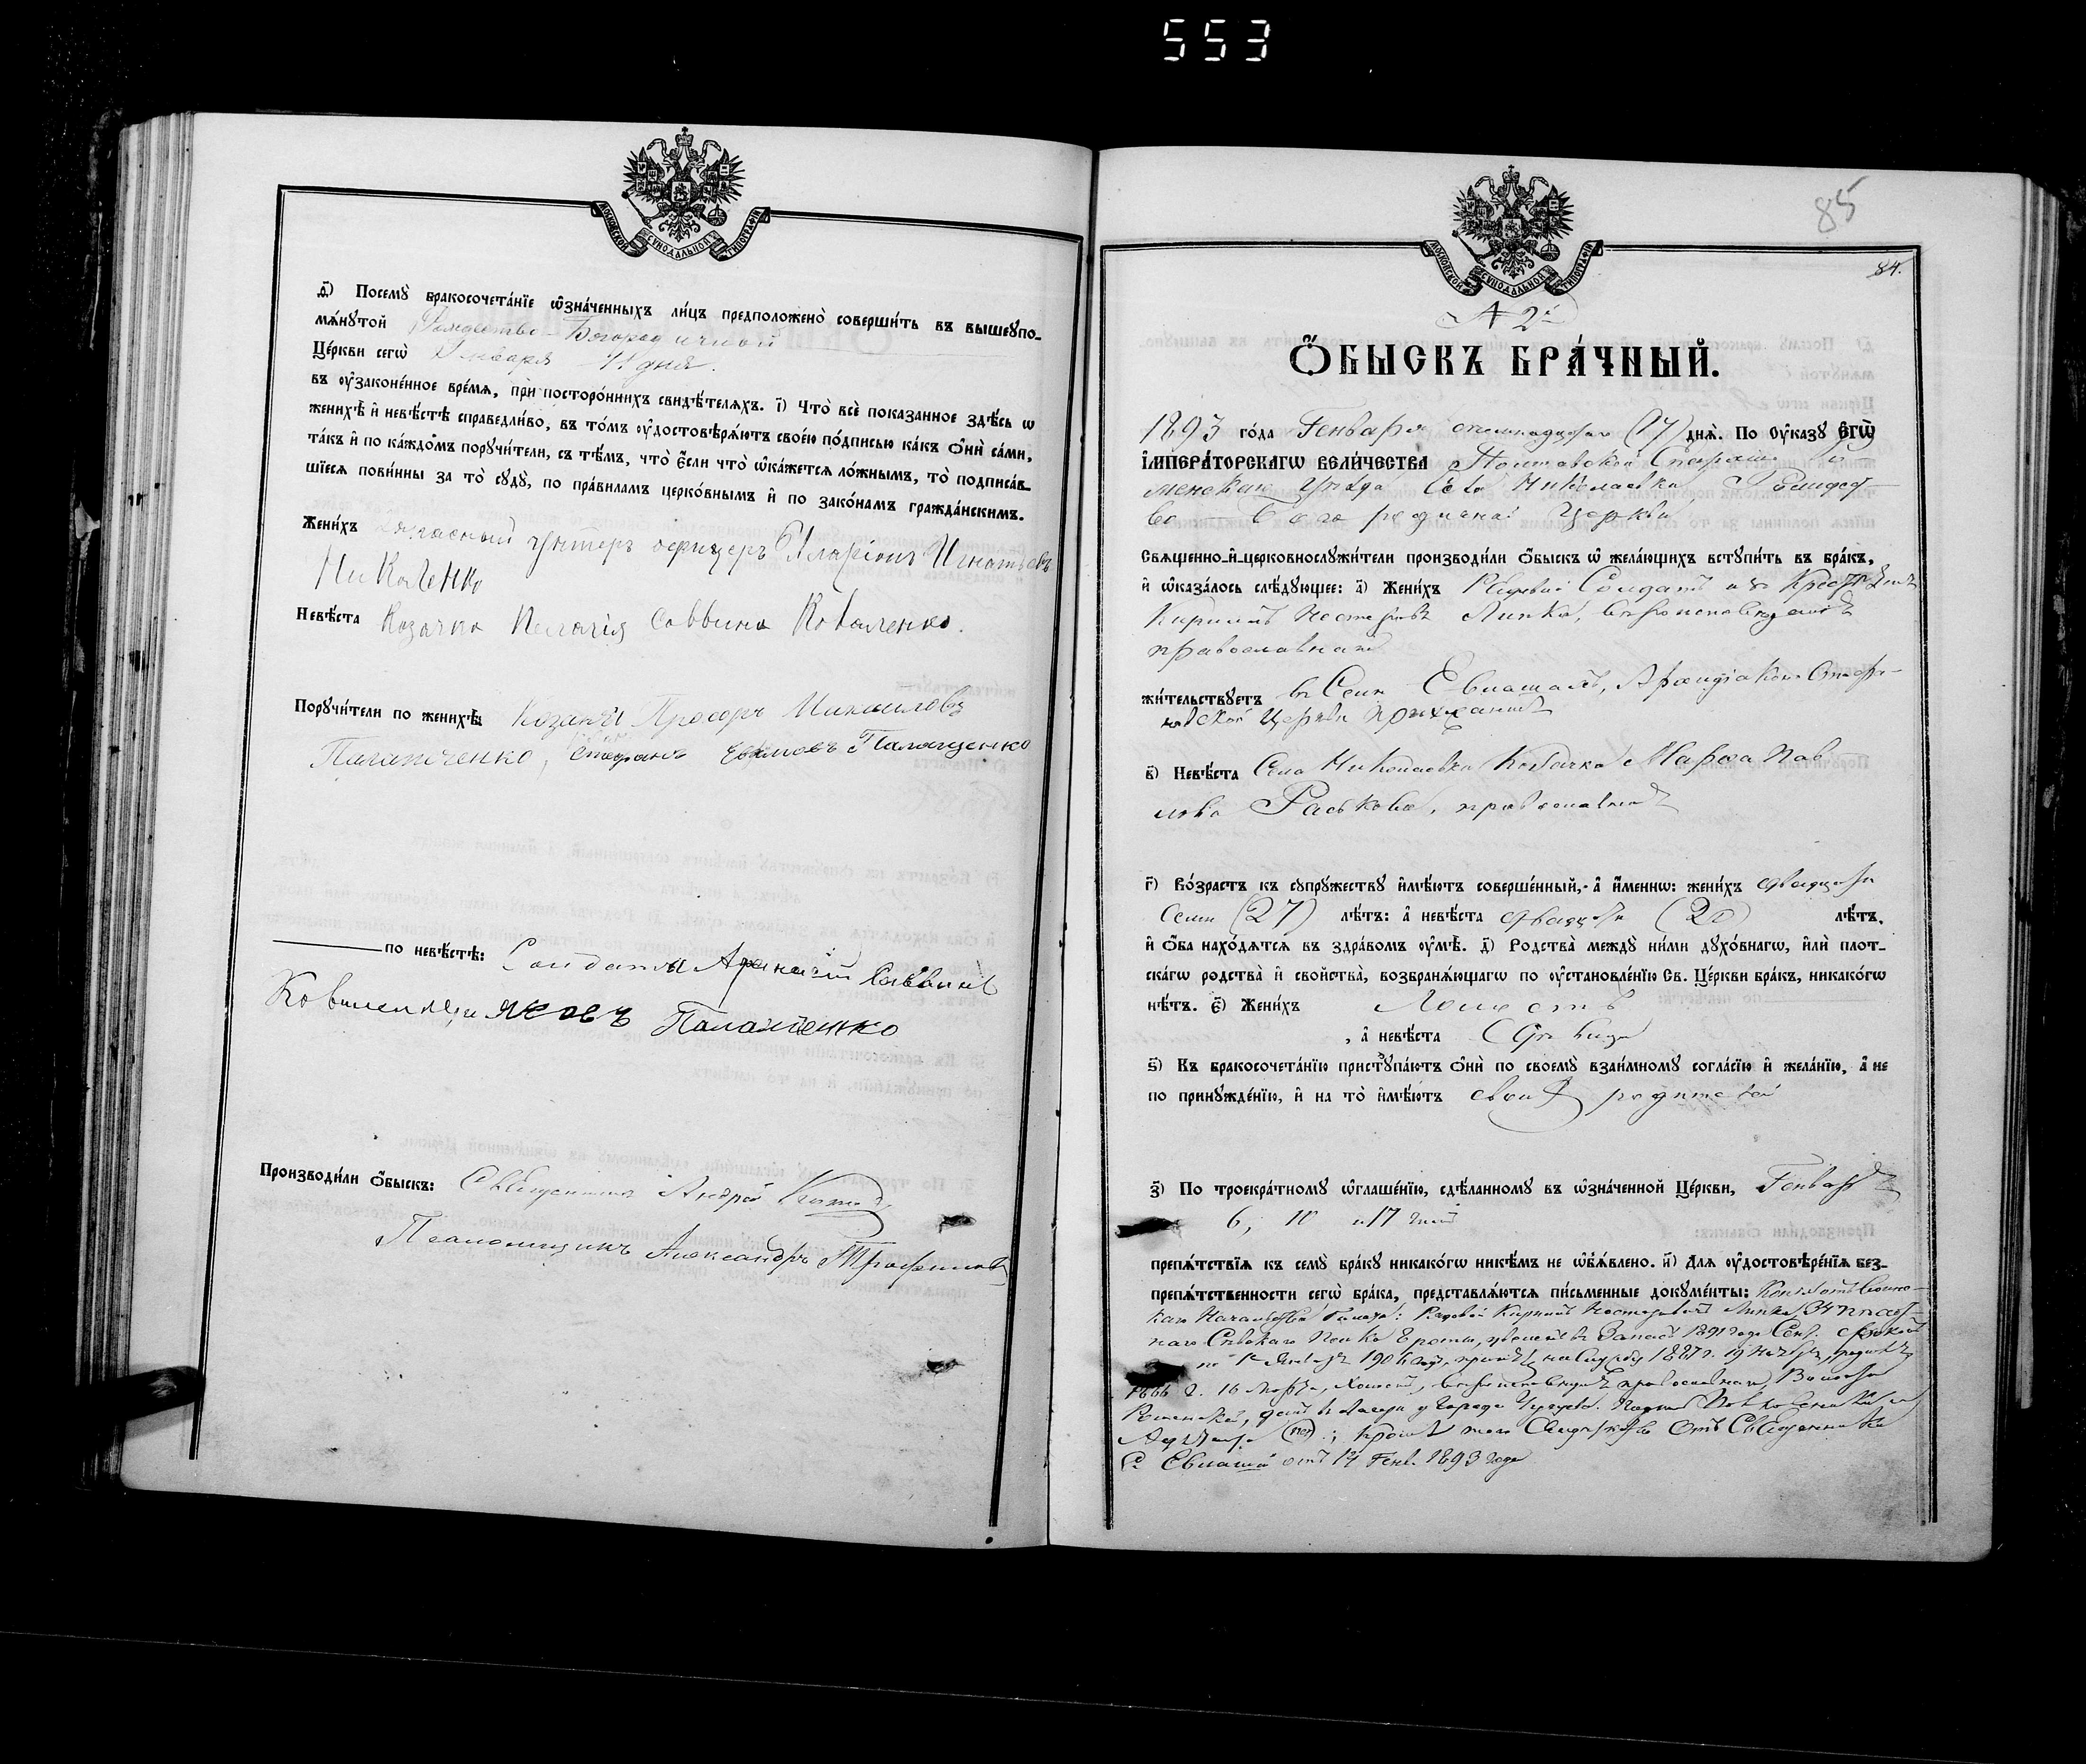 553
МОСКОВСКОЙ СѴНОДАЛЬНОЙ ТИПОГРАФІИ
д҃) Посемꙋ̀ бракосочета́нїе ѡ҆зна́ченныхъ ли́цъ предположено̀ соверши́ть въ вышеꙋпо-
мѧ́нꙋтой Рождество-Богородичной
Це́ркви сегѡ̀ Января 11 дня.
въ ᲂу҆законе́нное вре́мѧ, при посторо́ннихъ свидѣ́телѧхъ. і҃) Что̀ всѐ показанное здѣ́сь ѡ
женихѣ̀ и҆ невѣ́стѣ справедли́во, въ то́мъ ᲂу҆достовѣрѧ́ютъ свое́ю по́дписью ка́къ ѻ҆нѝ са́ми,
та́къ и҆ по ка́ждомъ порꙋчи́тели, съ тѣ́мъ, что̀ є҆́сли что̀ ѡ҆ка́жетсѧ ло́жнымъ, то̀ подписа́в-
шїесѧ пови́нны за то̀ сꙋдꙋ̀, по пра́виламъ церко́внымъ и҆ по зако́намъ гражда́нскимъ.
Жени́хъ Запасный унтеръ офицеръ Иларіонъ Игнатьевъ
Никаленко
Невѣ́ста Козачка Пелагія Саввина Коваленко.
Порꙋчи́тели по женихѣ̀: Козаки Прохоръ Михайловъ
Паламченко, Стефанъ Ефимовъ Паламченко
по невѣ́стѣ: Солдаты Афанасій Саввинъ
Коваленко и Яковъ Паламченко
Производи́ли ѻ҆́быскъ: Священникъ Андрей
Псаломщикъ Александръ Трофимовъ
85
МОСКОВСКОЙ СѴНОДАЛЬНОЙ ТИПОГРАФІИ
84.
№ 2й
Ѻ҆́БЫСКЪ БРА́ЧНЫЙ.
1893 го́да Генваря семнадцатаго (17) днѧ̀. По ᲂу҆казꙋ є҆гѡ̀
и҆мпера́торскагѡ вели́чества Полтавской Епархіи Ро-
менскаго уѣзда села Николаевки Рождест-
во-Богородичной Церкви
Свѧщенно-и҆-церковнослꙋжи́тели производи́ли ѻ҆́быскъ ѡ҆ жела́ющихъ встꙋпи́ть въ бра́къ,
и҆ ѡ҆каза́лось слѣ́дꙋющее: а҃) Жени́хъ Рядовой Солдатъ изъ Крестьянъ
Кирилъ Нестеровъ Липка, вѣроисповѣданія
православнаго
жи́тельствꙋетъ въ Селѣ Евлашахъ, Архидіакона Стефа-
новской церкви прихожанинъ
в҃) Невѣ́ста Села Николаевки Козачка Марфа Пав
лова Раськова, православная
г҃) Во́зрастъ къ сꙋпрꙋ́жествꙋ и҆мѣ́ютъ соверше́нный,- а҆ и҆́меннѡ: жени́хъ двадцати
семи (27) лѣ́тъ: а҆ невѣ́ста двадцати (20) лѣ́тъ.
и҆ ѻ҆́ба нахо́дѧтсѧ въ здра́вомъ ᲂу҆мѣ̀. д҃) Родства̀ междꙋ̀ ни́ми дꙋхо́внагѡ, и҆лѝ плот-
ска́гѡ родства̀ и҆ сво́йства̀, возбранѧ́ющагѡ по ᲂу҆становле́нїю Св. Це́ркви бра́къ, никако́гѡ
нѣ́тъ. є҃) Жени́хъ Холостъ
, а҆ невѣ́ста Дѣвица
ѕ҃) Къ бракосочета́нїю пристꙋпа́ютъ ѻ҆нѝ по своемꙋ̀ взаи́мномꙋ согла́сїю и҆ жела́нїю, а҆ не
по принꙋжде́нїю, и҆ на то̀ и҆мѣ́ютъ своихъ родителей
з҃) По троекра́тномꙋ ѡ҆глаше́нїю, сдѣ́ланномꙋ въ ѡ҆зна́ченной Це́ркви, Генваря
6, 10 и 17 дней
препѧ́тствїѧ къ семꙋ̀ бра́кꙋ никако́гѡ никѣ́мъ не ѡ҆б̾ѧ́влено. и҃) Длѧ ᲂу҆достовѣре́нїѧ без-
препѧ́тственности сегѡ̀ бра́ка, представлѧ́ютсѧ пи́сьменные докꙋме́нты:
Рядовой Кирилъ Нестеровичъ Липка 34 пѣхот-
наго Сѣвскаго Полка роты, уволенъ въ Запасъ 1891 года Сент.
по 1е Января 1906 года, принятъ на Службу 1887 г. 19 родился
1866 г. 16 Марта, Холостъ, вѣроисповѣданія православнаго
данъ въ Лагерѣ у Города Чугуева.
кромѣ того отъ Священника
С. Евлашей отъ 14 Генв. 1893 года